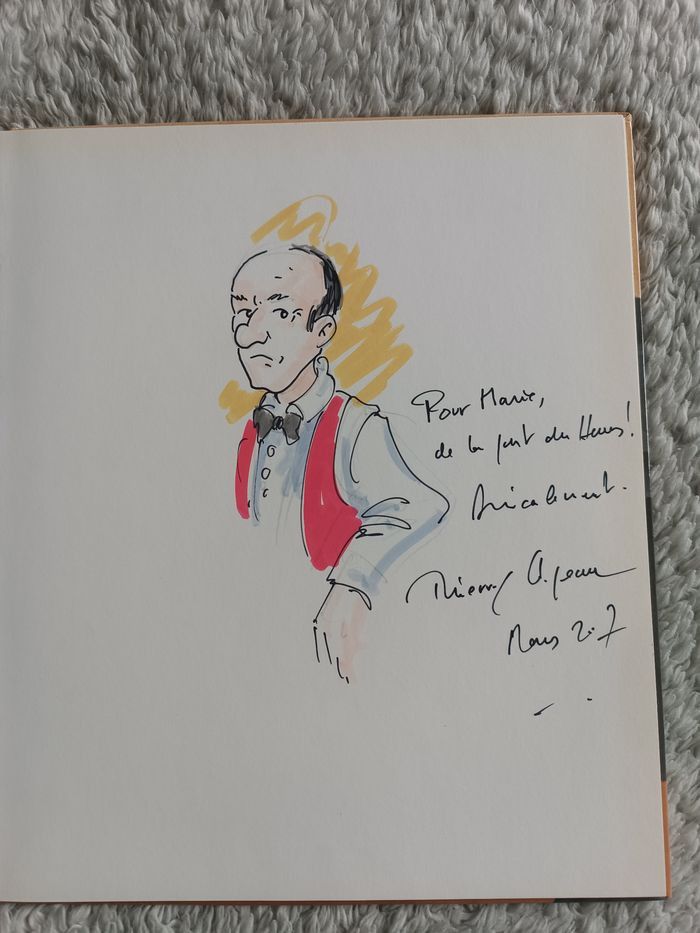 Pour Marie,
de la part du Héros!
Amicalement.
Thierry
Mars